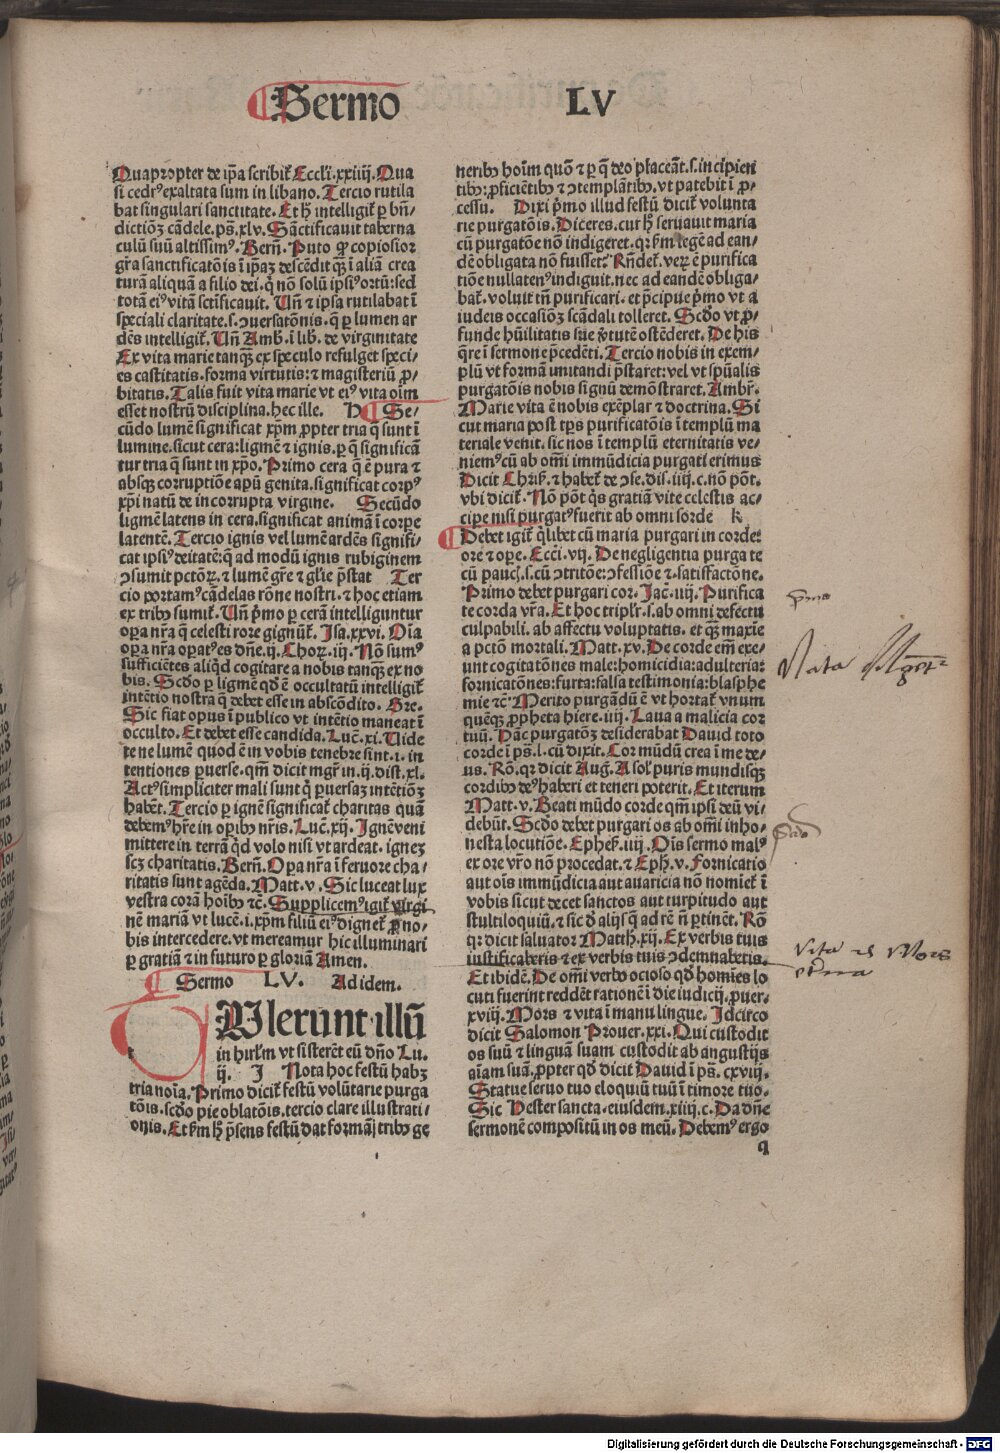 Sermo LV
Quapropter de ip̄a scribit᷑ Eccl'i.xxiiij.Qua
si cedrꝰ exaltata sum in libano. Tercio rutila
bat singulari sanctitate. Et h̄ intelligit᷑ ꝑ bn̄⸗
dictioꝫ cādele.ps̄.xlv. Sāctificauit taberna
culū suū altissimꝰ. Bern̄. Puto ꝙ copiosior
gr̄a sanctificatōis ī ip̄aꝫ descēdit qꝫ ī aliā crea
turā aliquā a filio dei.q̄ nō solū ipsiꝰ ortū:sed
totā eiꝰ vitā sctīficauit. Un̄ ⁊ ipsa rutilabat ī
speciali claritate.s.ↄuersatōnis.q̄ ꝑ lumen ar
dēs intelligit᷑. Un̄ Amb. ī lib. de virginitate
Ex vita marie tanqꝫ ex speculo refulget speci⸗
es castitatis.forma virtutis:⁊ magisteriū ꝓ⸗
bitatis. Talis fuit vita marie vt eiꝰ vita oīm
esset nostrū disciplina.hec ille. H Se⸗
cūdo lumē significat xp̄m ꝓpter tria q̄ sunt ī
lumine.sicut cera:ligmē ⁊ ignis.ꝑ q̄ significā
tur tria q̄ sunt in xp̄o. Primo cera q̄ ē pura ⁊
absqꝫ corruptiōe apū genita.significat corpꝰ
xp̄i natū de incorrupta virgine. Secūdo
ligmē latens in cera.significat animā ī corpe
latentē. Tercio ignis vel lumē ardēs signifi⸗
cat ipsiꝰ deitatē:q̄ ad modū ignis rubiginem
ↄsumit pctōꝝ.⁊ lumē gr̄e ⁊ gl'ie p̄stat Ter
cio portamꝰ cādelas rōne nostri.⁊ hoc etiam
ex tribꝰ sumit᷑. Un̄ p̄mo ꝑ cerā intelliguntur
oꝑa nr̄a q̄ celesti rore gignūt᷑. Isa.xxvi. Oīa
oꝑa nr̄a oꝑatꝰ es dn̄e.ij. Choꝝ.iij. Nō sumꝰ
sufficiētes aliqd cogitare a nobis tanqꝫ ex no
bis. Scdo ꝑ ligmē qd̄ ē occultatū intelligit᷑
intētio nostra q̄ debet esse in abscōdito. Gre.
Sic fiat opus ī publico vt intētio maneat ī
occulto. Et debet esse candida. Luc̄.xi. Uide
te ne lumē quod ē in vobis tenebre sint.i. in
tentiones ꝑuerse.qm̄ dicit mgr̄ in.ij.dist.xl.
Actꝰ simpliciter mali sunt q̄ ꝑuersaꝫ intētioꝫ
habēt. Tercio ꝑ ignē significat᷑ charitas quā
debemꝰ hr̄e in oꝑibꝰ nr̄is. Luc̄.xij. Ignē veni
mittere in terrā qd volo nisi vt ardeat.igneꝫ
scꝫ charitatis. Bern̄. Oꝑa nr̄a ī feruore cha⸗
ritatis sunt agēda. Matt.v. Sic luceat lux
vestra corā hoībꝰ ⁊c̄. Supplicemꝰ igit᷑ virgi
nē mariā vt lucē.i.xp̄m filiū eiꝰ dignet᷑ ꝓ no⸗
bis intercedere.vt mereamur hic illuminari
ꝑ gratiā ⁊ in futuro ꝑ gloriā Amen.
Sermo LV. Ad idem.
Ulerunt illū
in hirl'm vt sisterēt eū dn̄o Lu.
ij. I Nota hoc festū habꝫ
tria noīa. Primo dicit᷑ festū volūtarie purga
tōis.scdo pie oblatōis.tercio clare illustrati⸗
onis. Et ẜm h̄ p̄sens festū dat formā tribꝰ ge
neribꝰ hoīm quō ⁊ ꝑ q̄ deo placeāt.s.incipien
tibꝰ:ꝓficiētibꝰ ⁊ ↄtemplātibꝰ.vt patebit ī ꝓ⸗
cessu. Dixi p̄mo illud festū dicit᷑ volunta
rie purgatōnis. Diceres.cur h̄ seruauit maria
cū purgatōe nō indigeret.qr ẜm legē ad ean⸗
dē obligata nō fuisset? Rn̄det᷑.veꝝ ē purifica
tiōe nullatenꝰ indiguit.nec ad eandē obliga⸗
bat᷑.voluit tn̄ purificari.et p̄cipue p̄mo vt a
iudeis occasioꝫ scādali tolleret. Scdo vt ꝓ⸗
funde hūilitatis sue v̄tutē ostēderet. De his
q̄re ī sermone p̄cedēti. Tercio nobis in exem⸗
plū vt formā imitandi p̄staret:vel vt sp̄ualis
purgatōis nobis signū demōstraret. Ambr̄.
Marie vita ē nobis exēplar ⁊ doctrina. Si
cut maria post tp̄s purificatōis ī templū ma
teriale venit.sic nos ī templū eternitatis ve⸗
niemꝰ cū ab om̄i immūdicia purgati erimus
Dicit Chris̄.⁊ habet᷑ de ↄse.dis.iiij.c.nō pōt.
vbi dicit᷑. Nō pōt q̄s gratiā vite celestis ac⸗
cipe nisi purgatꝰ fuerit ab omni sorde K
Debet igit᷑ q̄libet cū maria purgari in corde:
ore ⁊ oꝑe. Ecci.vij. De negligentia purga te
cū paucꝭ.s.cū ↄtritōe:ↄfessiōe ⁊ satisfactōne.
Primo debet purgari cor. Jac̄.iiij. Purifica
te corda vr̄a. Et hoc triplr̄.s.ab omni defectu
culpabili.ab affectu voluptatis.et qꝫ maxīe
a pctō mortali. Matt.xv. De corde em̄ exe⸗
unt cogitatōnes male:homicidia:adulteria:
fornicatōnes:furta:falsa testimonia:blasphe
mie ⁊c̄. Merito purgādū ē vt hortat᷑ vnum
quēqꝫ ꝓpheta hiere.iiij. Laua a malicia cor
tuū. Hāc purgatōꝫ desiderabat Dauid toto
corde ī ps̄.l.cū dixit. Cor mūdū crea ī me de⸗
us. Rō.qr dicit Auḡ. A sol' puris mundisqꝫ
cordibꝰ deꝰ haberi et teneri poterit. Et iterum
Matt.v. Beati mūdo corde qm̄ ipsi deū vi⸗
debūt. Scdo debet purgari os ab om̄i inho⸗
nesta locutiōe. Ephes̄.iiij. Ois sermo malꝰ
ex ore vr̄o nō procedat.⁊ Eph̄.v. Fornicatio
aut oīs immūdicia aut auaricia nō nomiet᷑ ī
vobis sicut decet sanctos aut turpitudo aut
stultiloquiū.⁊ sic d̄ alijs q̄ ad rē n̄ ꝑtinēt. Rō
qr dicit saluator Matth̄.xij. Ex verbis tuis
iustificaberis ⁊ ex verbis tuis ↄdemnaberis.
Et ibidē. De om̄i verbo ocioso qd̄ homies lo
cuti fuerint reddēt rationē ī die iudicij. ꝓuer.
xviij. Mors ⁊ vita ī manu lingue. Idcirco
dicit Salomon Prouer.xxi. Qui custodit
os suū ⁊ linguā suam custodit ab angustijs
aīam suā.ꝓpter qd̄ dicit Dauid ī ps̄.cxviij.
Statue seruo tuo eloquiū tuū ī timore tuo.
Sic Hester sancta.eiusdem.xiiij.c. Da dn̄e
sermonē compositū in os meū. Debemꝰ ergo
q
Nota
vita et Mors
eterna
Digitalisierung gefördert durch die Deutsche Forschungsgemeinschaft - DFG